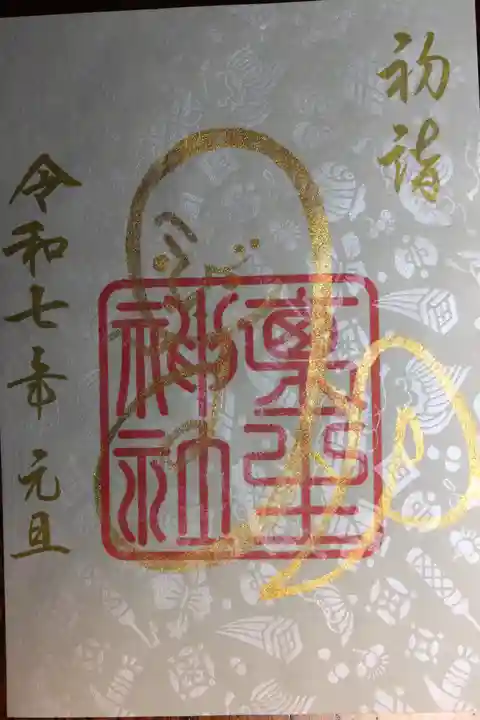 初詣
生
神社
令和七年 元旦